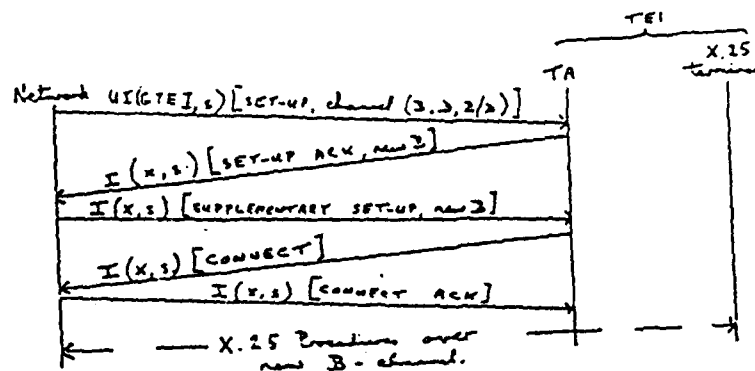 TE1
X.25
TA
Network UI(GTEI,s) [SET-UP, channel
I(x,s) [SET-UP ACK, new B]
I(x,s) [SUPPLEMENTARY SET-UP, new B]
I(x,s) [CONNECT]
I(x,s) [CONNECT ACK]
X.25 Procedures over
new B-channel.